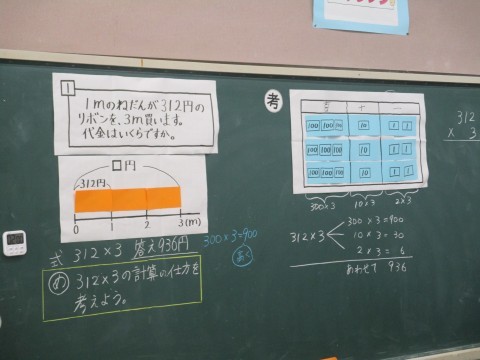 1
1mのねだんが312円の
リボンを、3m買います。
代金はいくらですか。
□円
312円
0 1 2 3(m)
式 312×3 答え936円
め 312×3の計算の仕方を
考えよう。
300×3=900
考
百 十 一
100 100 100 10 1 1
100 100 100 10 1 1
100 100 100 10 1 1
300×3 10×3 2×3
312×3
300×3=900
10×3=30
2×3=6
あわせて 936
312
× 3